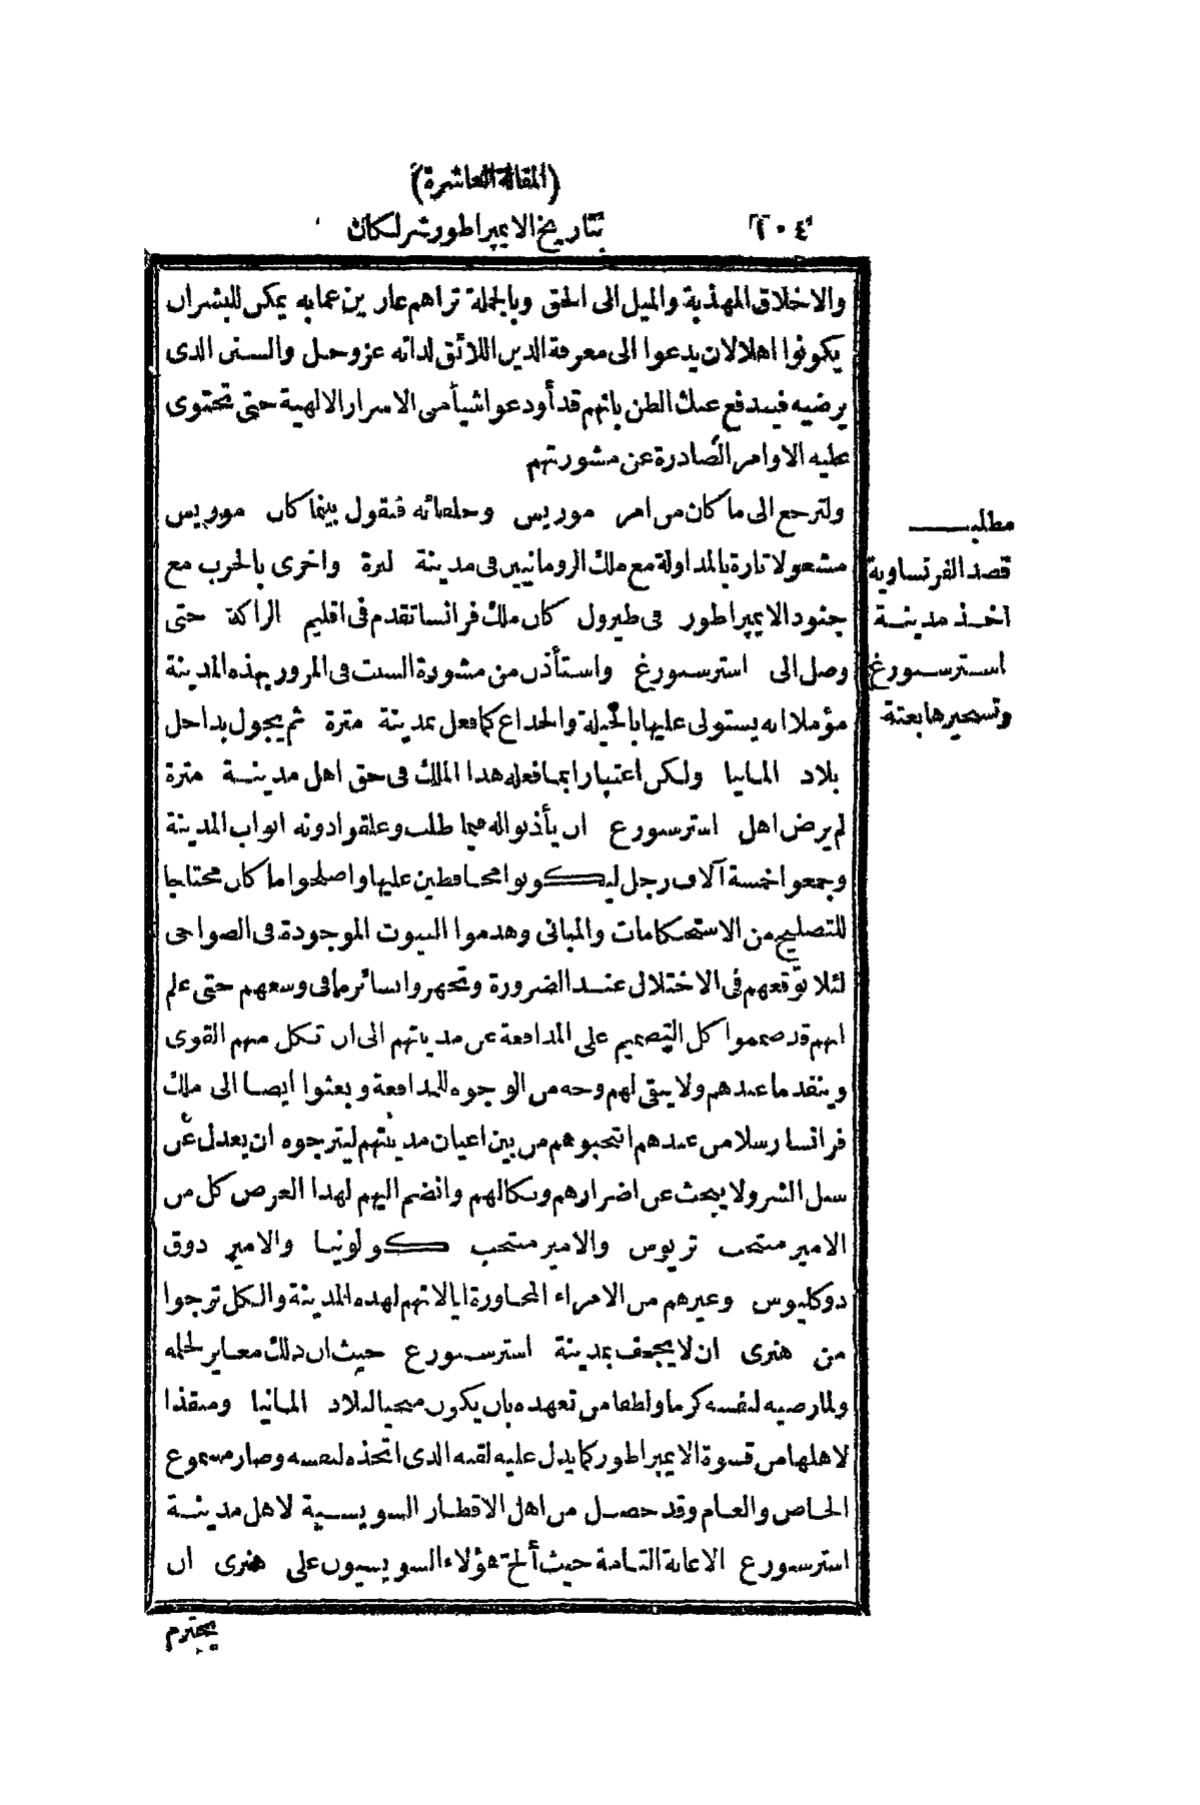 (المقالة العاشرة)
٢٠٤ بتاريخ الايمبراطور شرلكان
والاخلاق المهذبة والميل الى الحق وبالجملة تراهم عارين عما به يمكن للبشر ان
يكونوا اهلا لان يدعوا الى معرفة الدين اللائق لذاته عز وجل والسنن الذى
يرضيه فيندفع عنك الظن بانهم قد أودعوا شيأ من الاسرار الالهية حتى تحتوى
عليه الاوامر الصادرة عن مشورتهم
ولنرجع الى ما كان من امر موريس وحلفائه فنقول بينما كان موريس
مشغولا تارة بالمداولة مع ملك الرومانيين فى مدينة لنزة واخرى بالحرب مع
جنود الايمبراطور فى طيرول كان ملك فرانسا تقدم فى اقليم الزاكة حتى
وصل الى استرسبورغ واستأذن من مشورة السنت فى المرور بهذه المدينة
مؤملا انه يستولى عليها بالحيلة والخداع كما فعل بمدينة متزة ثم يجول بداخل
بلاد المانيا ولكن اعتبارا بما فعله هذا الملك فى حق اهل مدينة متزة
لم يرض اهل استرسبورغ ان يأذنوا له فيما طلب وغلقوا دونه ابواب المدينة
وجمعوا خمسة آلاف رجل ليكونوا محافظين عليها واصلحوا ما كان محتاجا
للتصليح من الاستحكامات والمبانى وهدموا البيوت الموجودة فى الضواحى
لئلا توقعهم فى الاختلال عند الضرورة وتجهزوا بسائر ما فى وسعهم حتى علم
انهم قد صمموا كل التصميم على المدافعة عن مدينتهم الى ان تكل منهم القوى
وينفد ما عندهم ولا يبقى لهم وجه من الوجوه للمدافعة وبعثوا ايضا الى ملك
فرانسا رسلا من عندهم انتخبوهم من بين اعيان مدينتهم ليترجوه ان يعدل عن
سبل الشر ولا يبحث عن اضرارهم ونكالهم وانضم اليهم لهذا الغرض كل من
الامير منتخب تريوس والامير منتخب كولونيا والامير دوق
دوكليوس وغيرهم من الامراء المجاورة ايالاتهم لهذه المدينة والكل ترجوا
من هنرى ان لا يجحف بمدينة استرسبورغ حيث ان ذلك مغاير لحلمه
ولما رضيه لنفسه كرما ولطفا من تعهده بان يكون منجيا لبلاد المانيا ومنقذا
لاهلها من قسوة الايمبراطور كما يدل عليه لقبه الذى اتخذه لنفسه وصار مسموع
الخاص والعام وقد حصل من اهل الاقطار السويسية لاهل مدينة
استرسبورغ الاعانة التامة حيث ألح هؤلاء السويسيون على هنرى ان
يحترم
مطلب
قصد الفرنساوية
اخذ مدينة
استرسبورغ
وتسخيرها بغتة